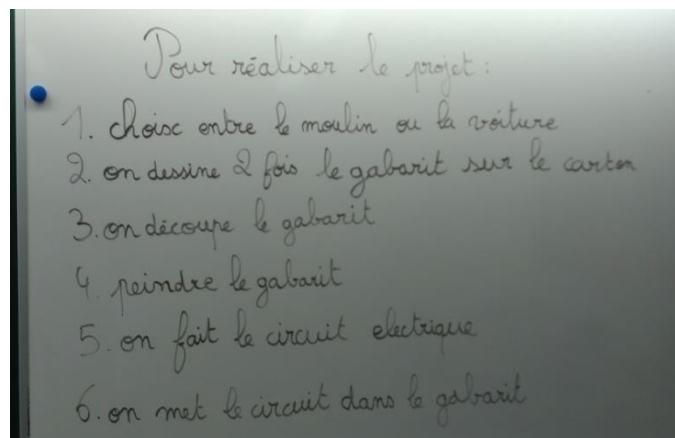 Pour réaliser le projet :
1. choix entre le moulin ou la voiture
2. on dessine 2 fois le gabarit sur le carton
3. on découpe le gabarit
4. peindre le gabarit
5. on fait le circuit electrique
6. on met le circuit dans le gabarit